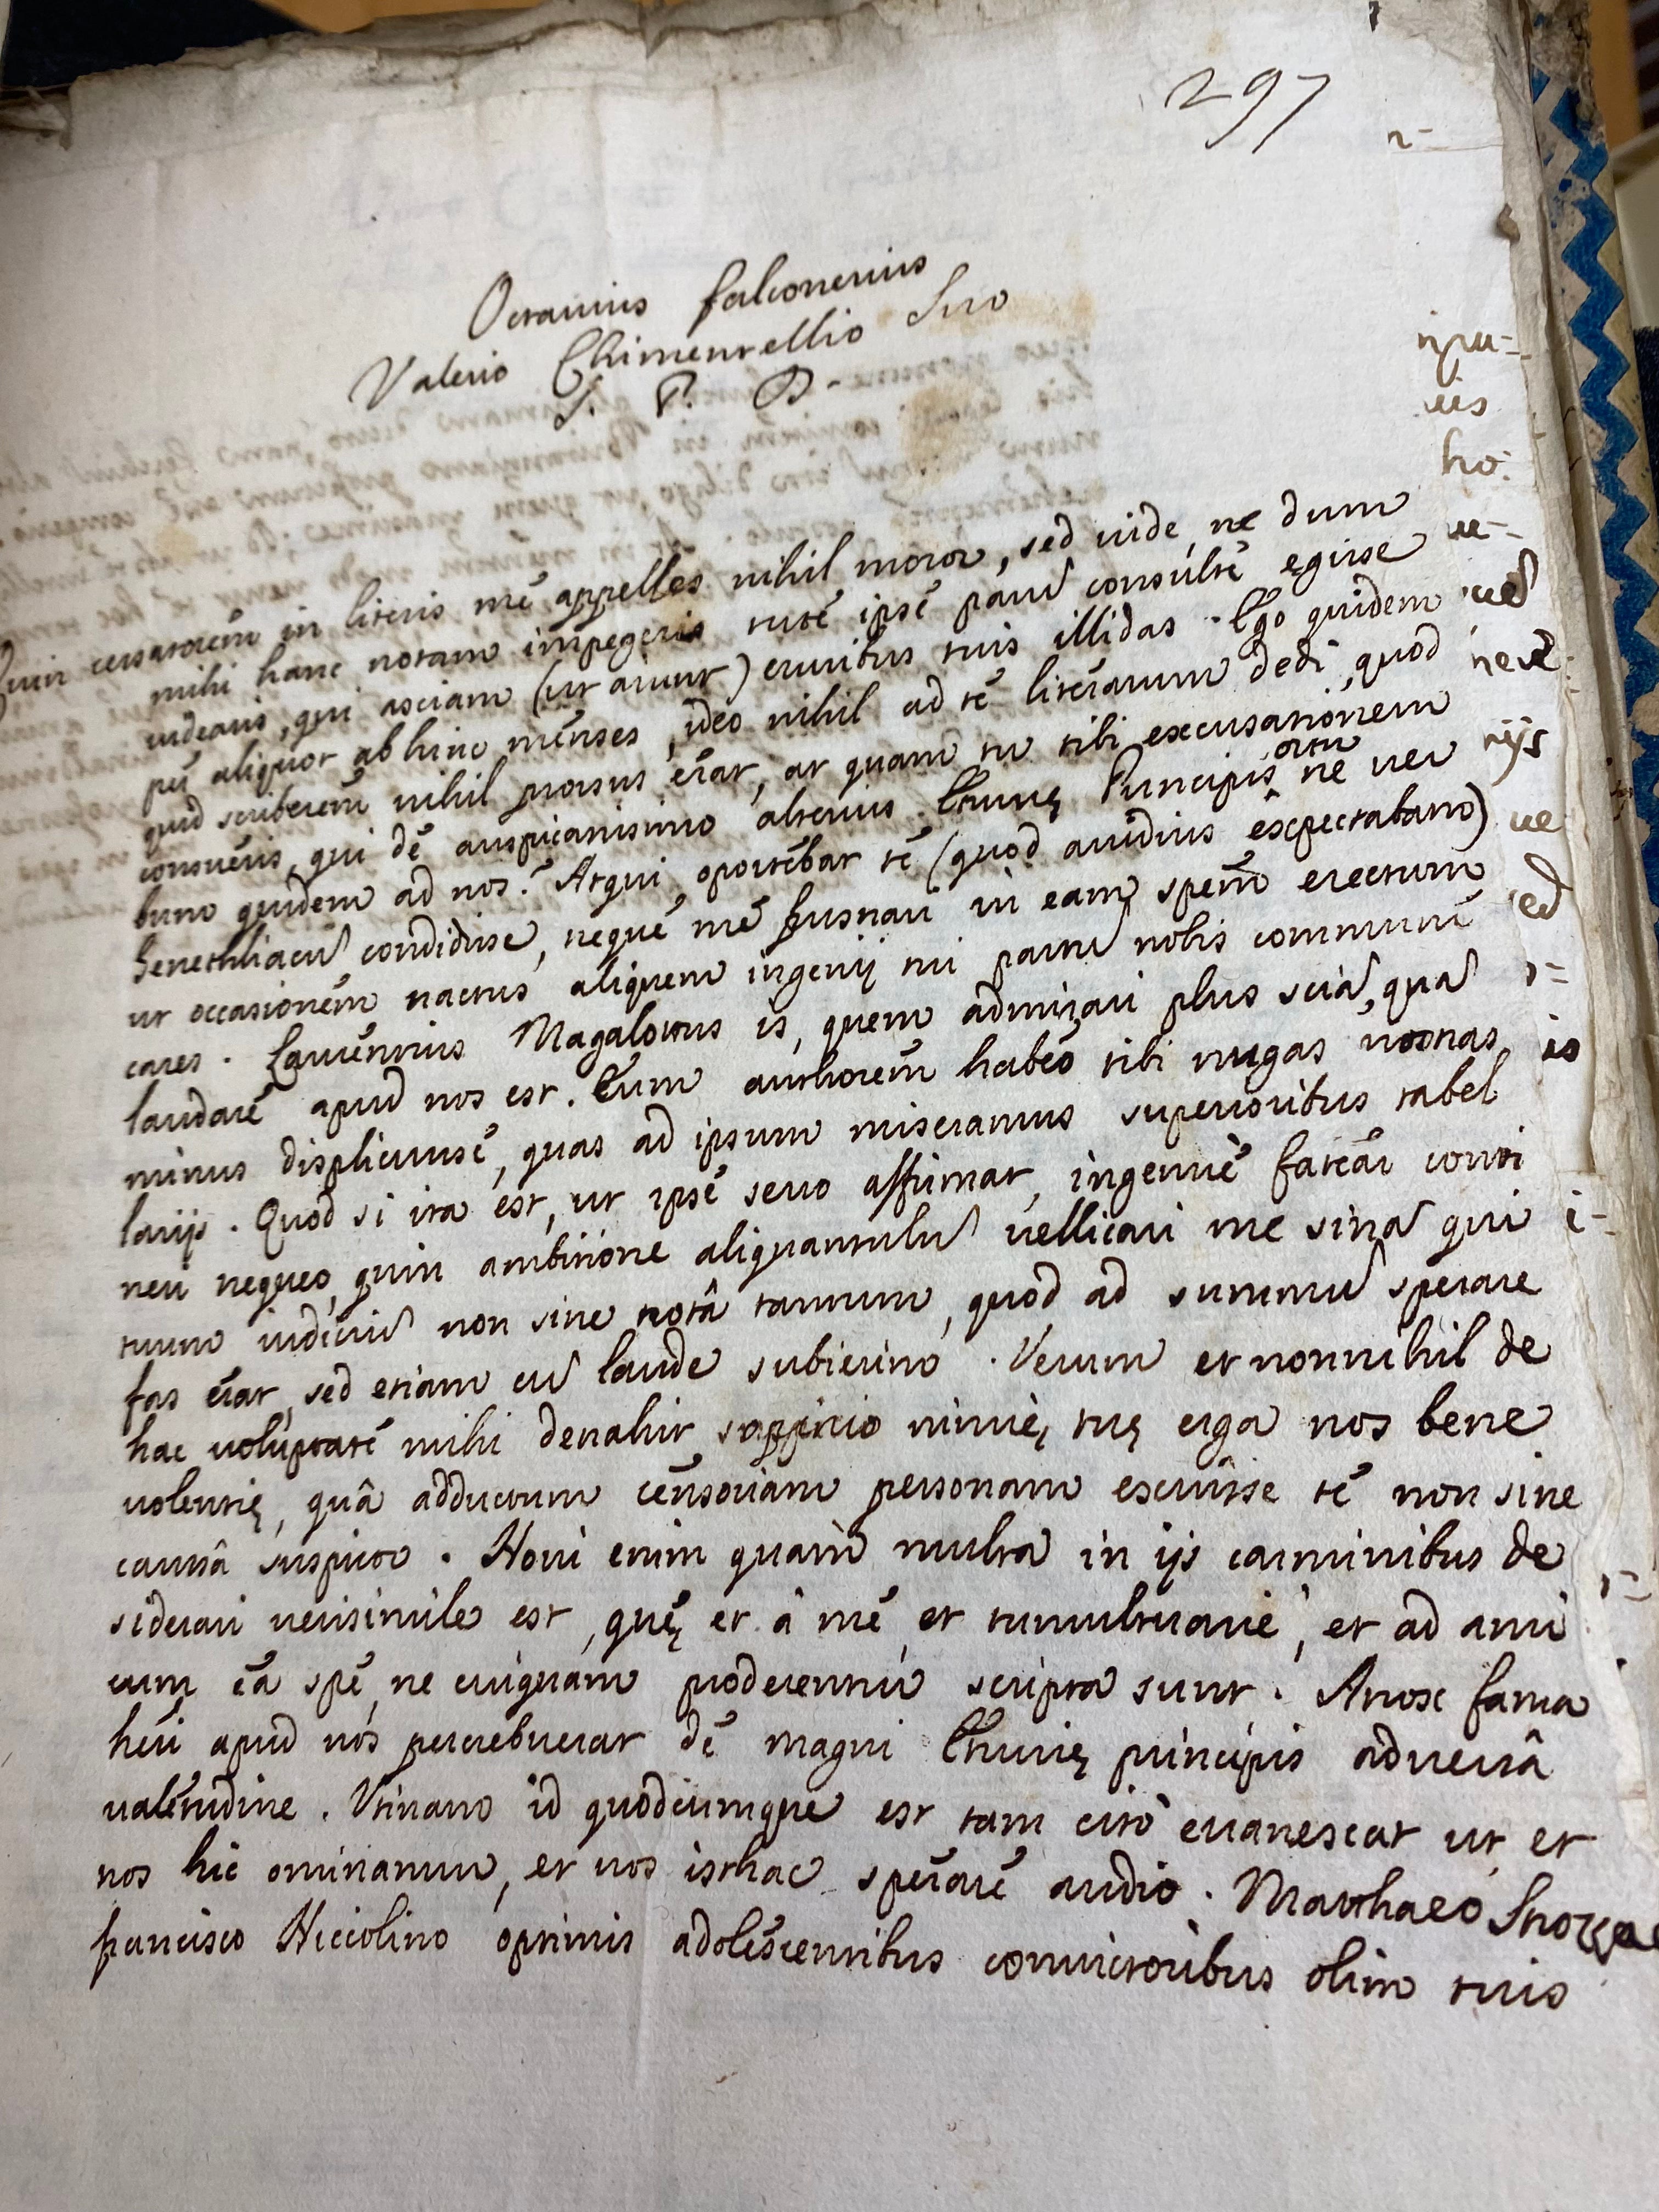 297
Octauius Falconerius
Valerio Chimentellio Suo
S. P. D.
Quin cessatorem in literis mé appelles nihil moror, sed uide, ne dum
mihi hanc notam impegeris tuté ipsé parũ consulté egisse
uidearis, qui asciam (ut aiunt) cruribus tuis illidas. Ego quidem
aliquot abhinc ménses, ideo nihil ad té literarum dedi, quod
quid scriberem nihil prorsus erat, at quam tu tibi excusationem
conquéris, qui dé auspicatissimo alterius Etrurię Principis ortu né uer
bum quidem ad nos? Atqui oportébat té (quod auidius expectabam)
Genethliacũ condidisse, neque mé frustrari in eam spem erectum
ut occasioném nactus aliquem ingenij tui partũ nobis communi
cares. Lauréntius Magalottus is, quem admirari plus sciã, quã
laudaré apud nos est. Eum authorem habeo tibi nugas nostras
minus displicuissé, quas ad ipsum miseramus superioribus tabel
larijs. Quod si ita est, ut ipsé serio affirmat, ingenué fateãr conti
neri nequeo, quin ambitione aliquantulũ uellicari me sinã qui
tuum iudiciũ non sine notâ tantum, quod ad summũ sperare
fas érat, sed etiam cũ laude subierim. Verum et nonnihil de
hac uoluptaté mihi detrahit suspicio nimię, tuę erga nos bene
uolentię, quâ adductum censoriam personam exuisse té non sine
causâ suspicor. Noui enim quàm multa in ijs carminibus de
siderari uerisimile est, quę et â mé et tumultuariè, et ad ami
cum éa spé, ne cuiquam proderentur scripta sunt. Atrox fama
héri apud nos percrebuerat dé magni Etrurię principis aduersâ
ualétudine. Vtinam id quodcumque est tam citò euanescat ut et
nos hic ominamur, et uos isthac spéraré audio. Matthaeo
francisco Niccolino optimis adoléscentibus conuictoribus olim tuis